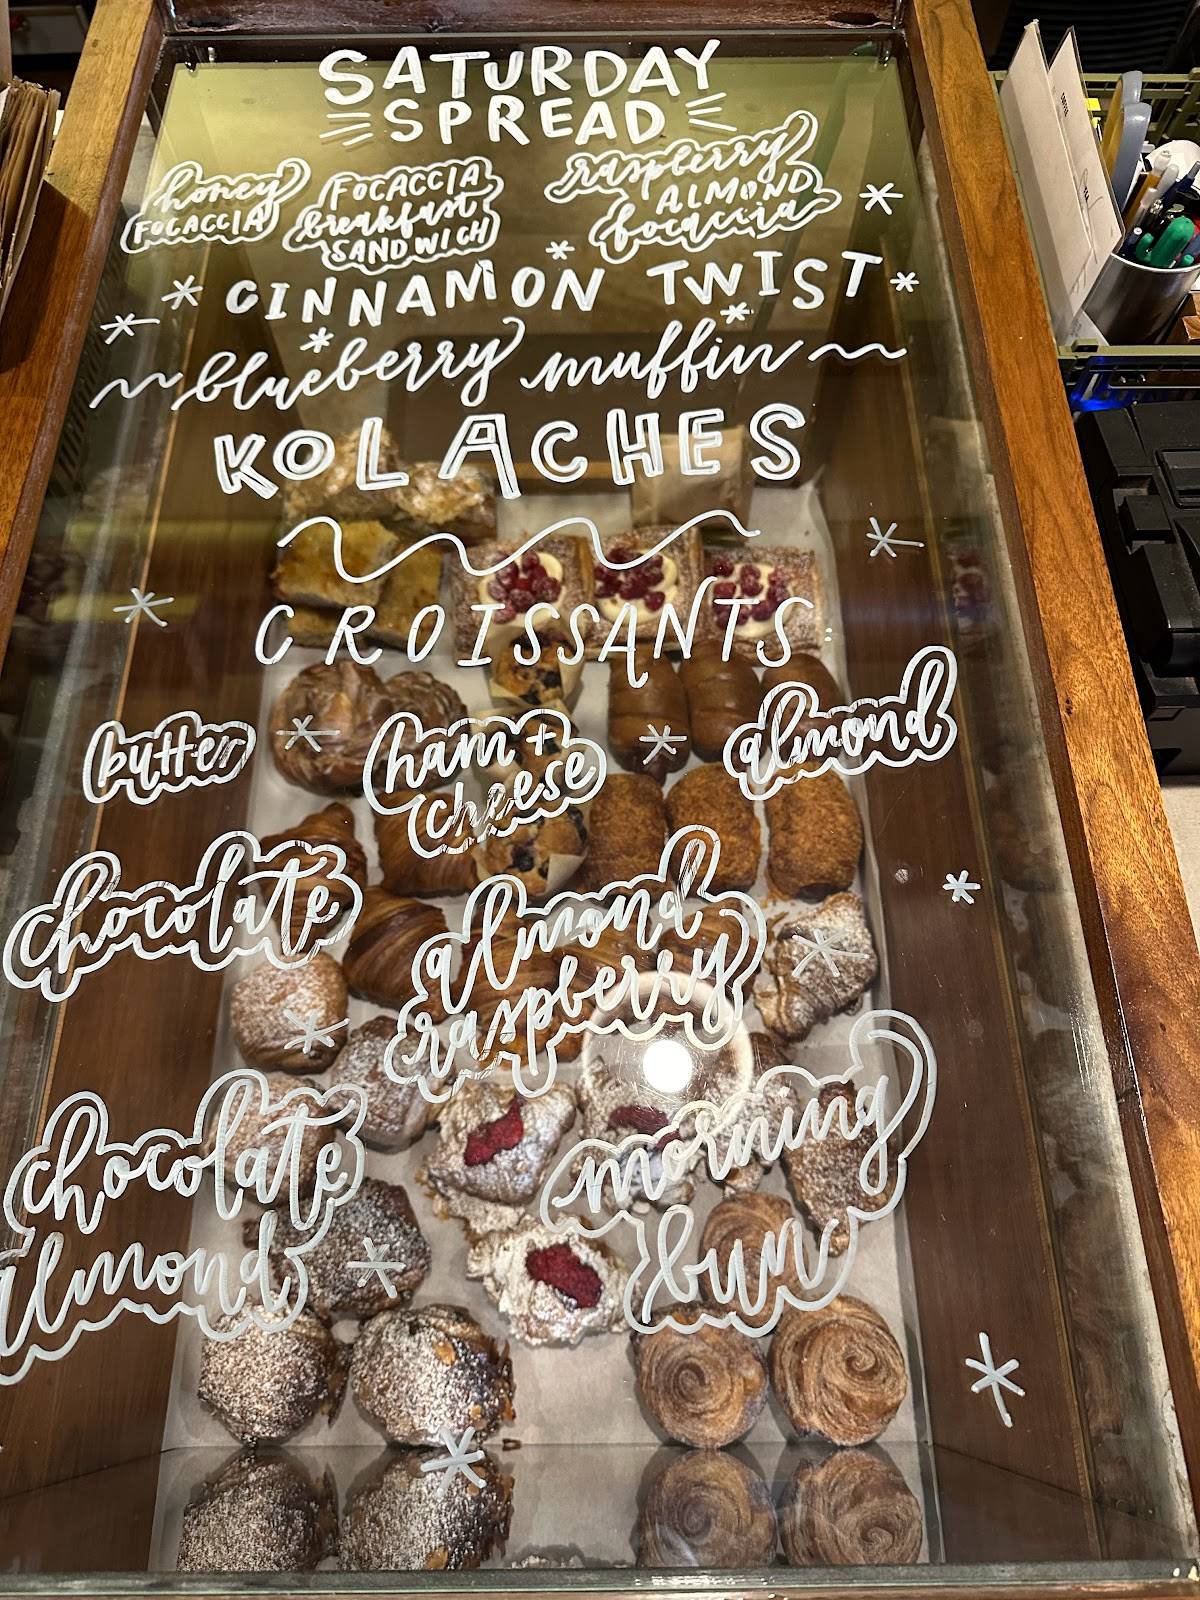 SATURDAY
SPREAD
honey
FOCACCIA
FOCACCIA
breakfast
SANDWICH
raspberry
ALMOND
focaccia
CINNAMON TWIST
blueberry muffin
KOLACHES
CROISSANTS
butter
ham +
cheese
almond
chocolate
almond
raspberry
chocolate
almond
morning
bun